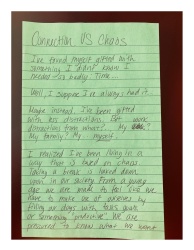 Connection VS Chaos
I've found myself gifted with
something I didn't know I
needed
Well, I suppose I've always had it.
Maybe instead, I've been gifted
with less distractions. But
distractions from what?... My
My family? My myself
I realized I've been living in a
way that is based on chaos
Taking a break is looked down
upon in our society. From a young
age we are made to feel like we
have to make use of ourselves by
filling our days with tasks
or something "productive". We are
pressured to know what we want